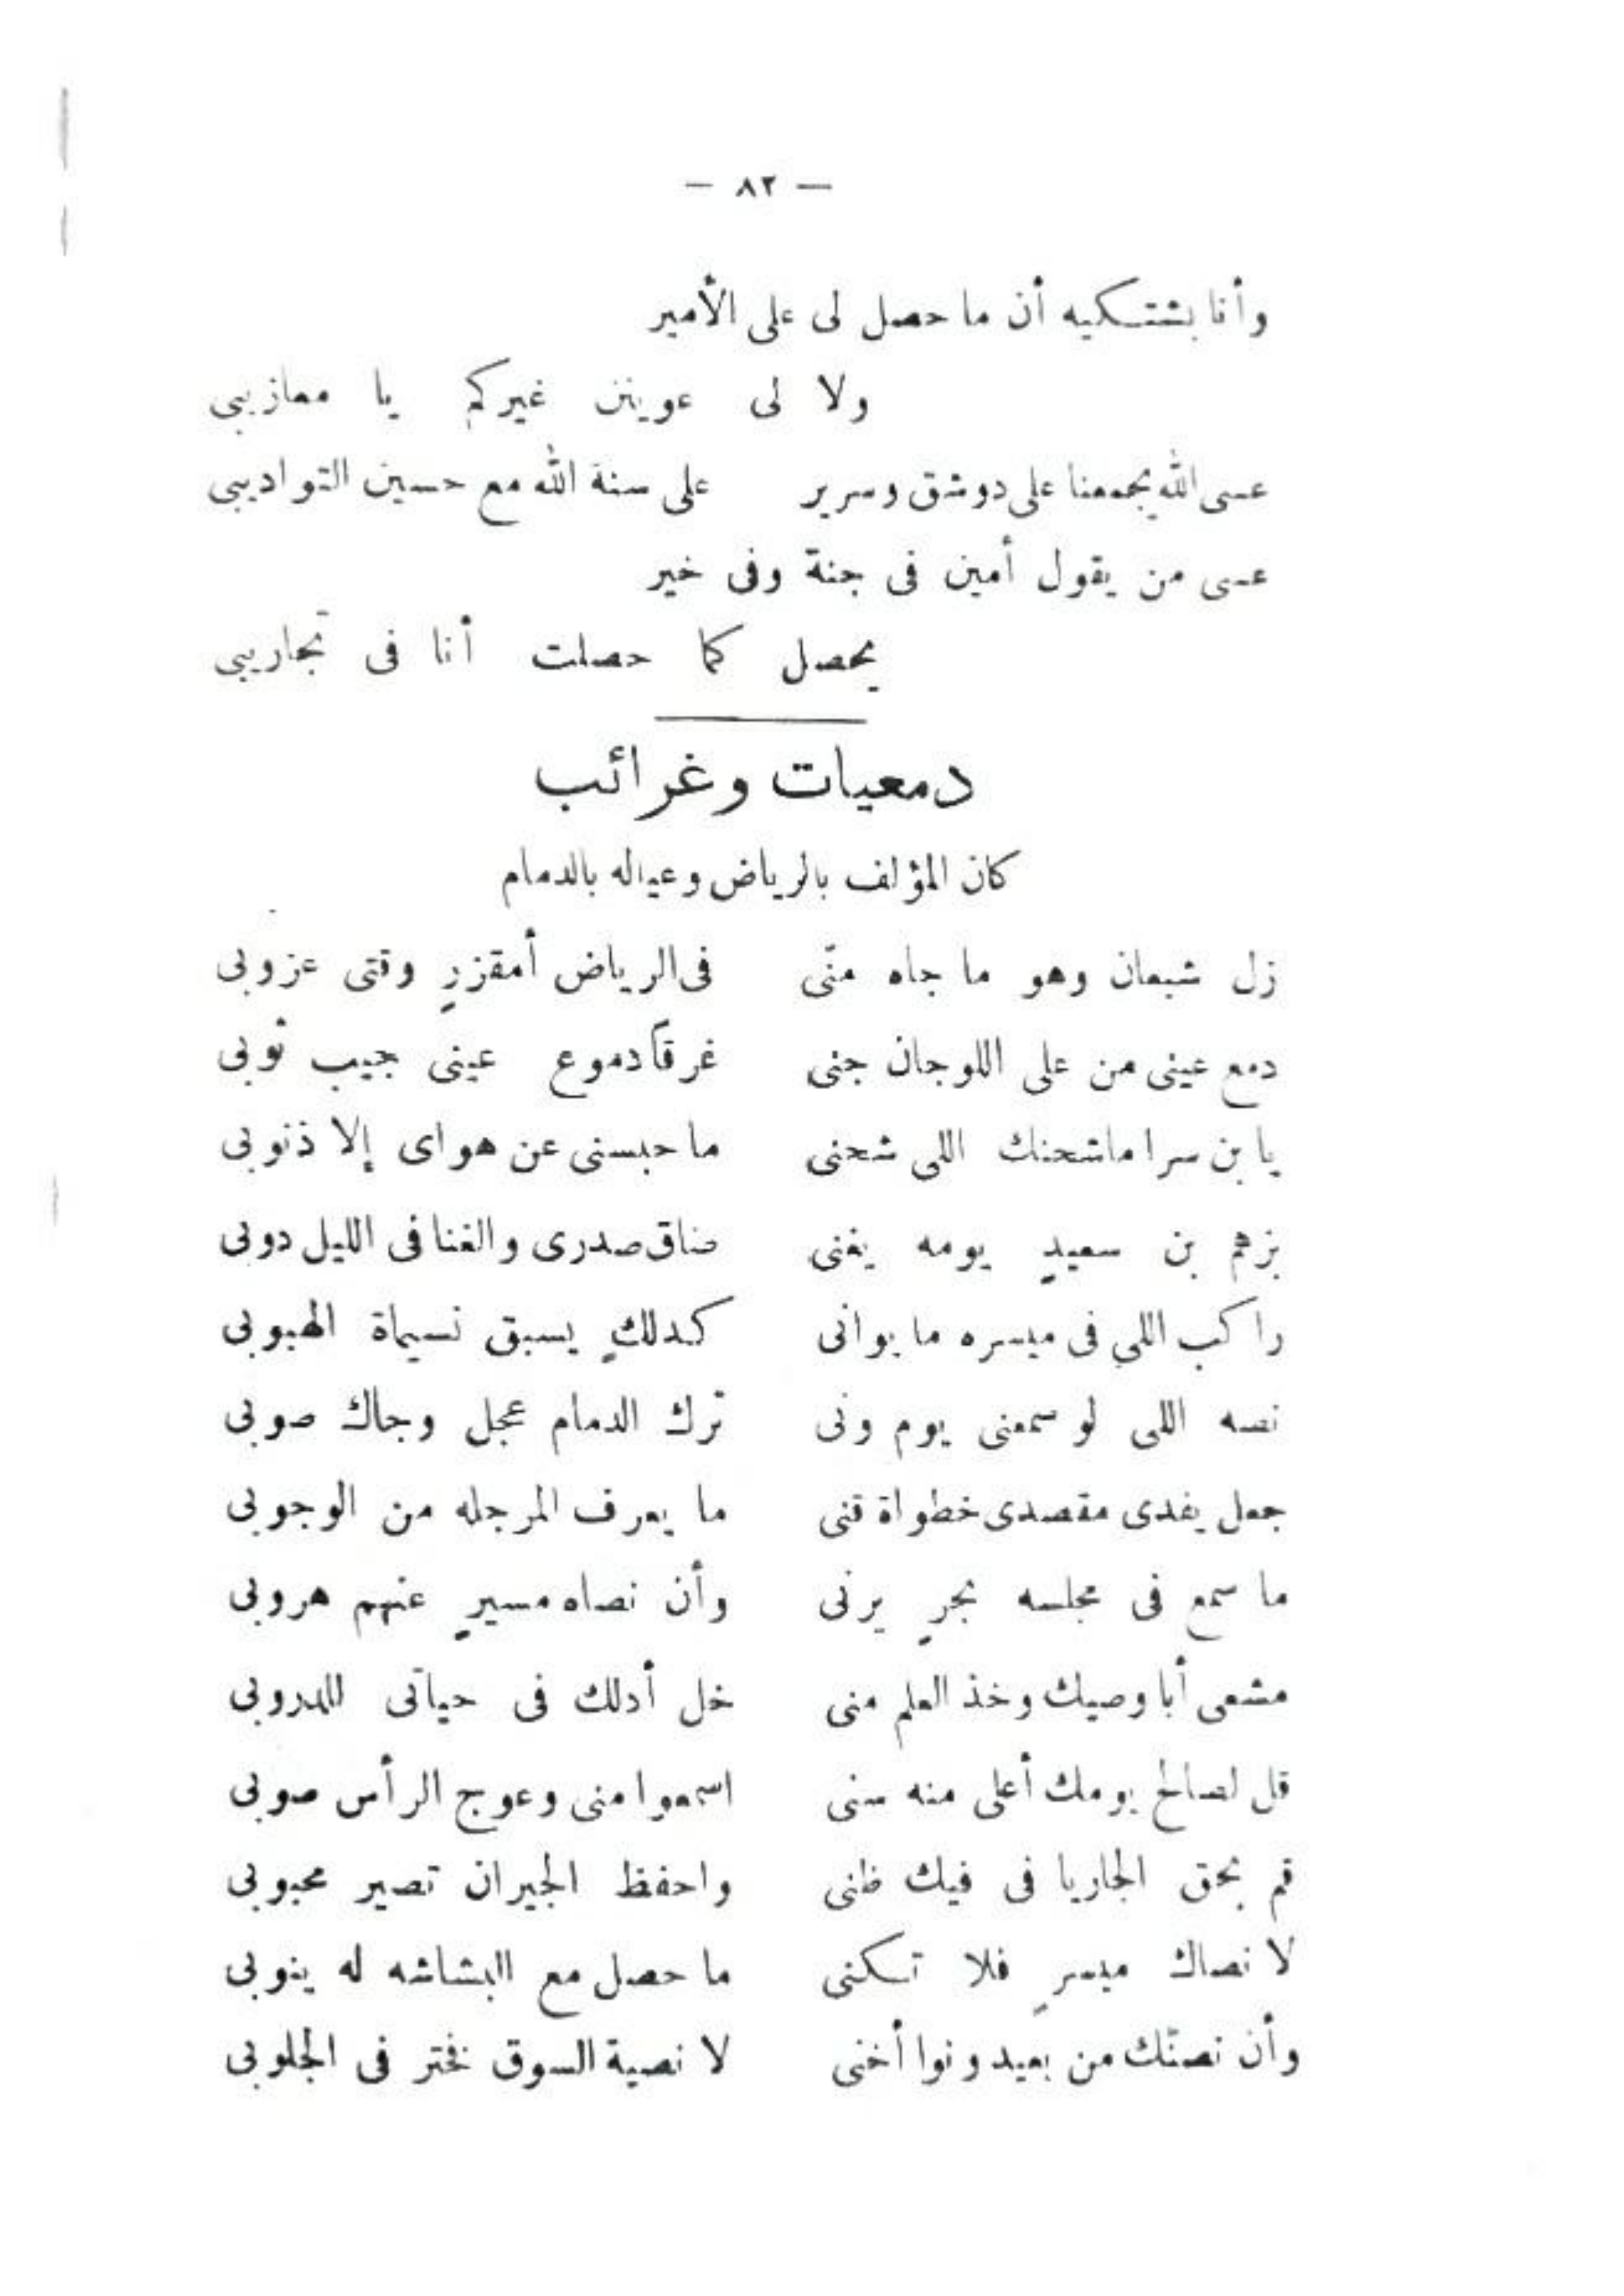 — ٨٢ —
وأنا بشتكيه أن ما حصل لى على الأمير
ولا لى عوينن غيركم يا معازيبى
عسى الله يجمعنا على دوشق وسرير على سنة الله مع حسين التواديبى
عسى من يقول أمين فى جنة وفى خير
يحصل كما حصلت أنا فى تجاريبى
دمعيات وغرائب
كان المؤلف بالرياض وعياله بالدمام
زل شبعان وهو ما جاه منّى فى الرياض أمقزرٍ وقتى عزوبى
دمع عينى من على اللوجان جنى غرقاً دموع عينى جيب ثوبى
يا بن سرا ماشحنك اللى شحنى ما حبسنى عن هواى إلا ذنوبى
بزهم بن سعيدٍ يومه يغنى ضاق صدرى والغنا فى الليل دوبى
راكب اللي فى ميسره ما يوانى كدلكٍ يسبق نسيماة الهبوبى
نصه اللى لو سمعنى يوم ونى ترك الدمام عجل وجاك صوبى
جعل يفدى مقصدى خطواة قنى ما يعرف المرجله من الوجوبى
ما سمع فى مجلسه نجرٍ يرنى وأن نصاه مسيرٍ عنهم هروبى
مشعى أبا وصيك وخذ العلم منى خل أدلك فى حياتى للدروبى
قل لصالح يومك أعلى منه سنى اسمعوا منى وعوج الرأس صوبى
قم بحق الجاريا فى فيك ظنى واحفظ الجيران تصير محبوبى
لا نصاك ميسرٍ فلا تكنى ما حصل مع البشاشه له ينوبى
وأن نصتك من بعيد ونوا أخنى لا نصية السوق نختر فى الجلوبى